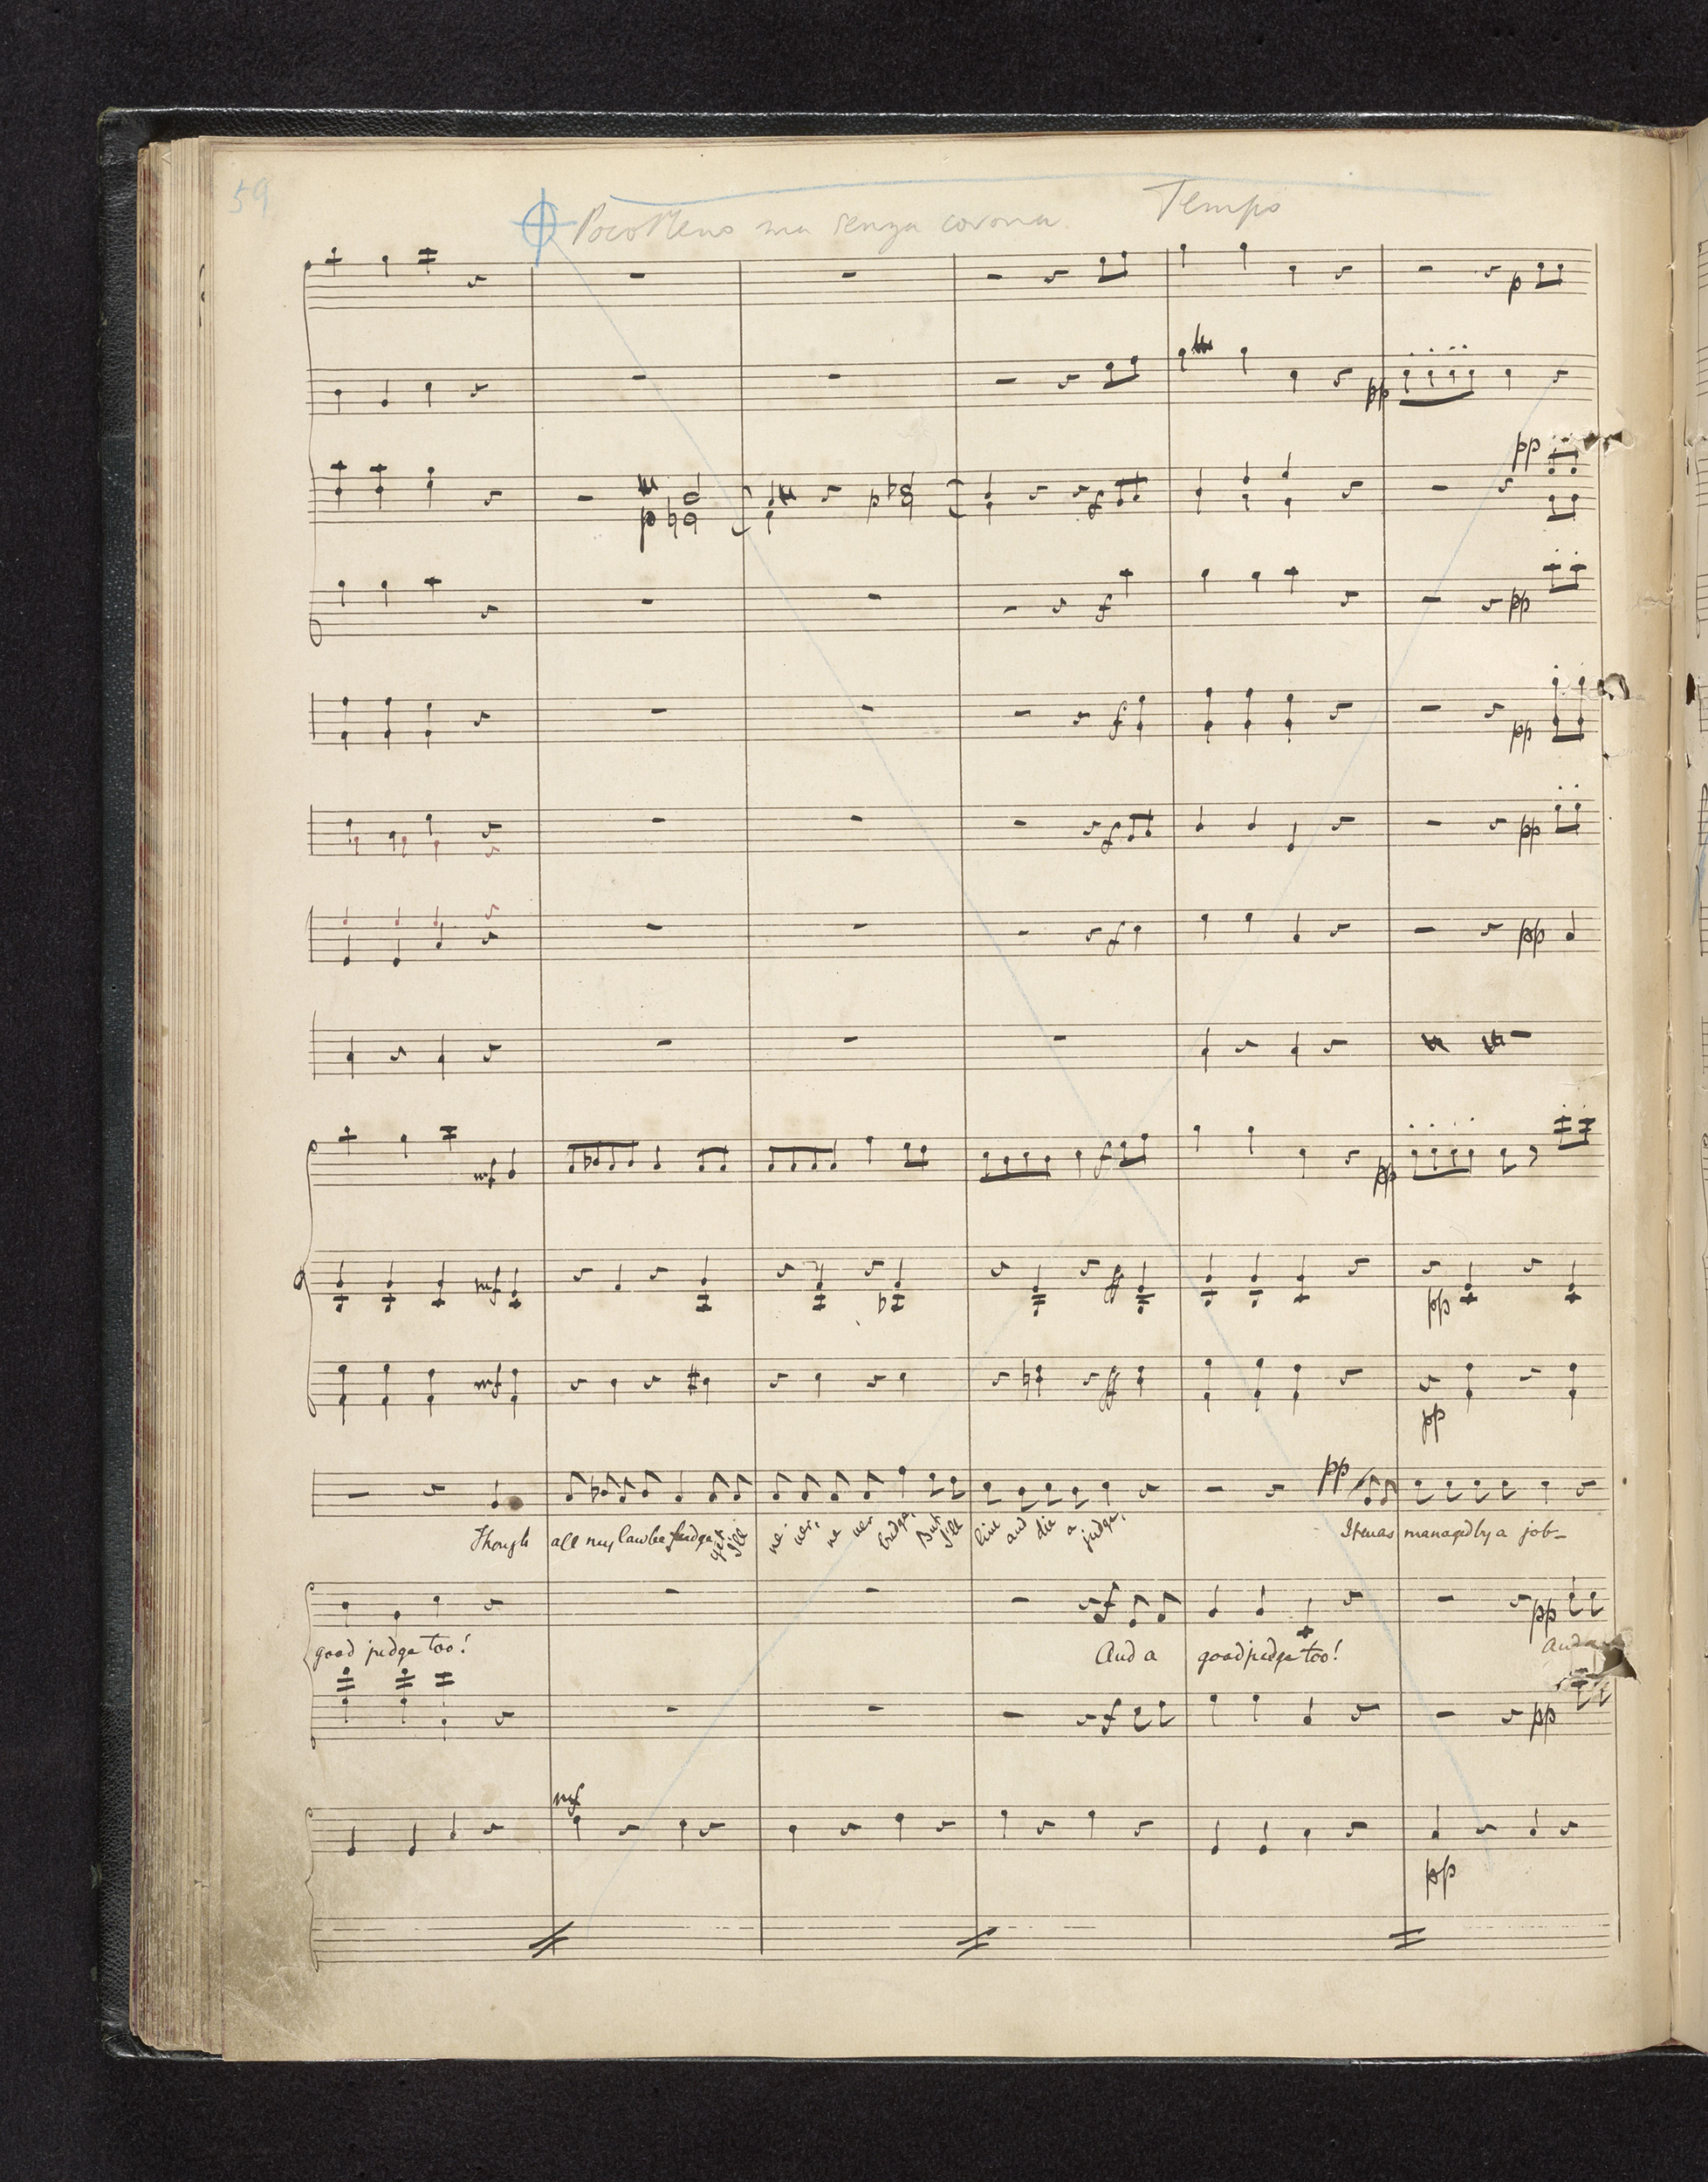 59
Poco Meno ma senza corona. Tempo
p
pp
p p f pp
f pp
f pp
f pp
f pp
mf f pp
mf ff pp
mf ff pp
pp
Though all my law be fudge, yet I'll ne- ver, ne ver budge, But I'll live and die a judge, It was managed by a job-
f pp
good judge too! And a good judge too! And a
f pp
mf
pp